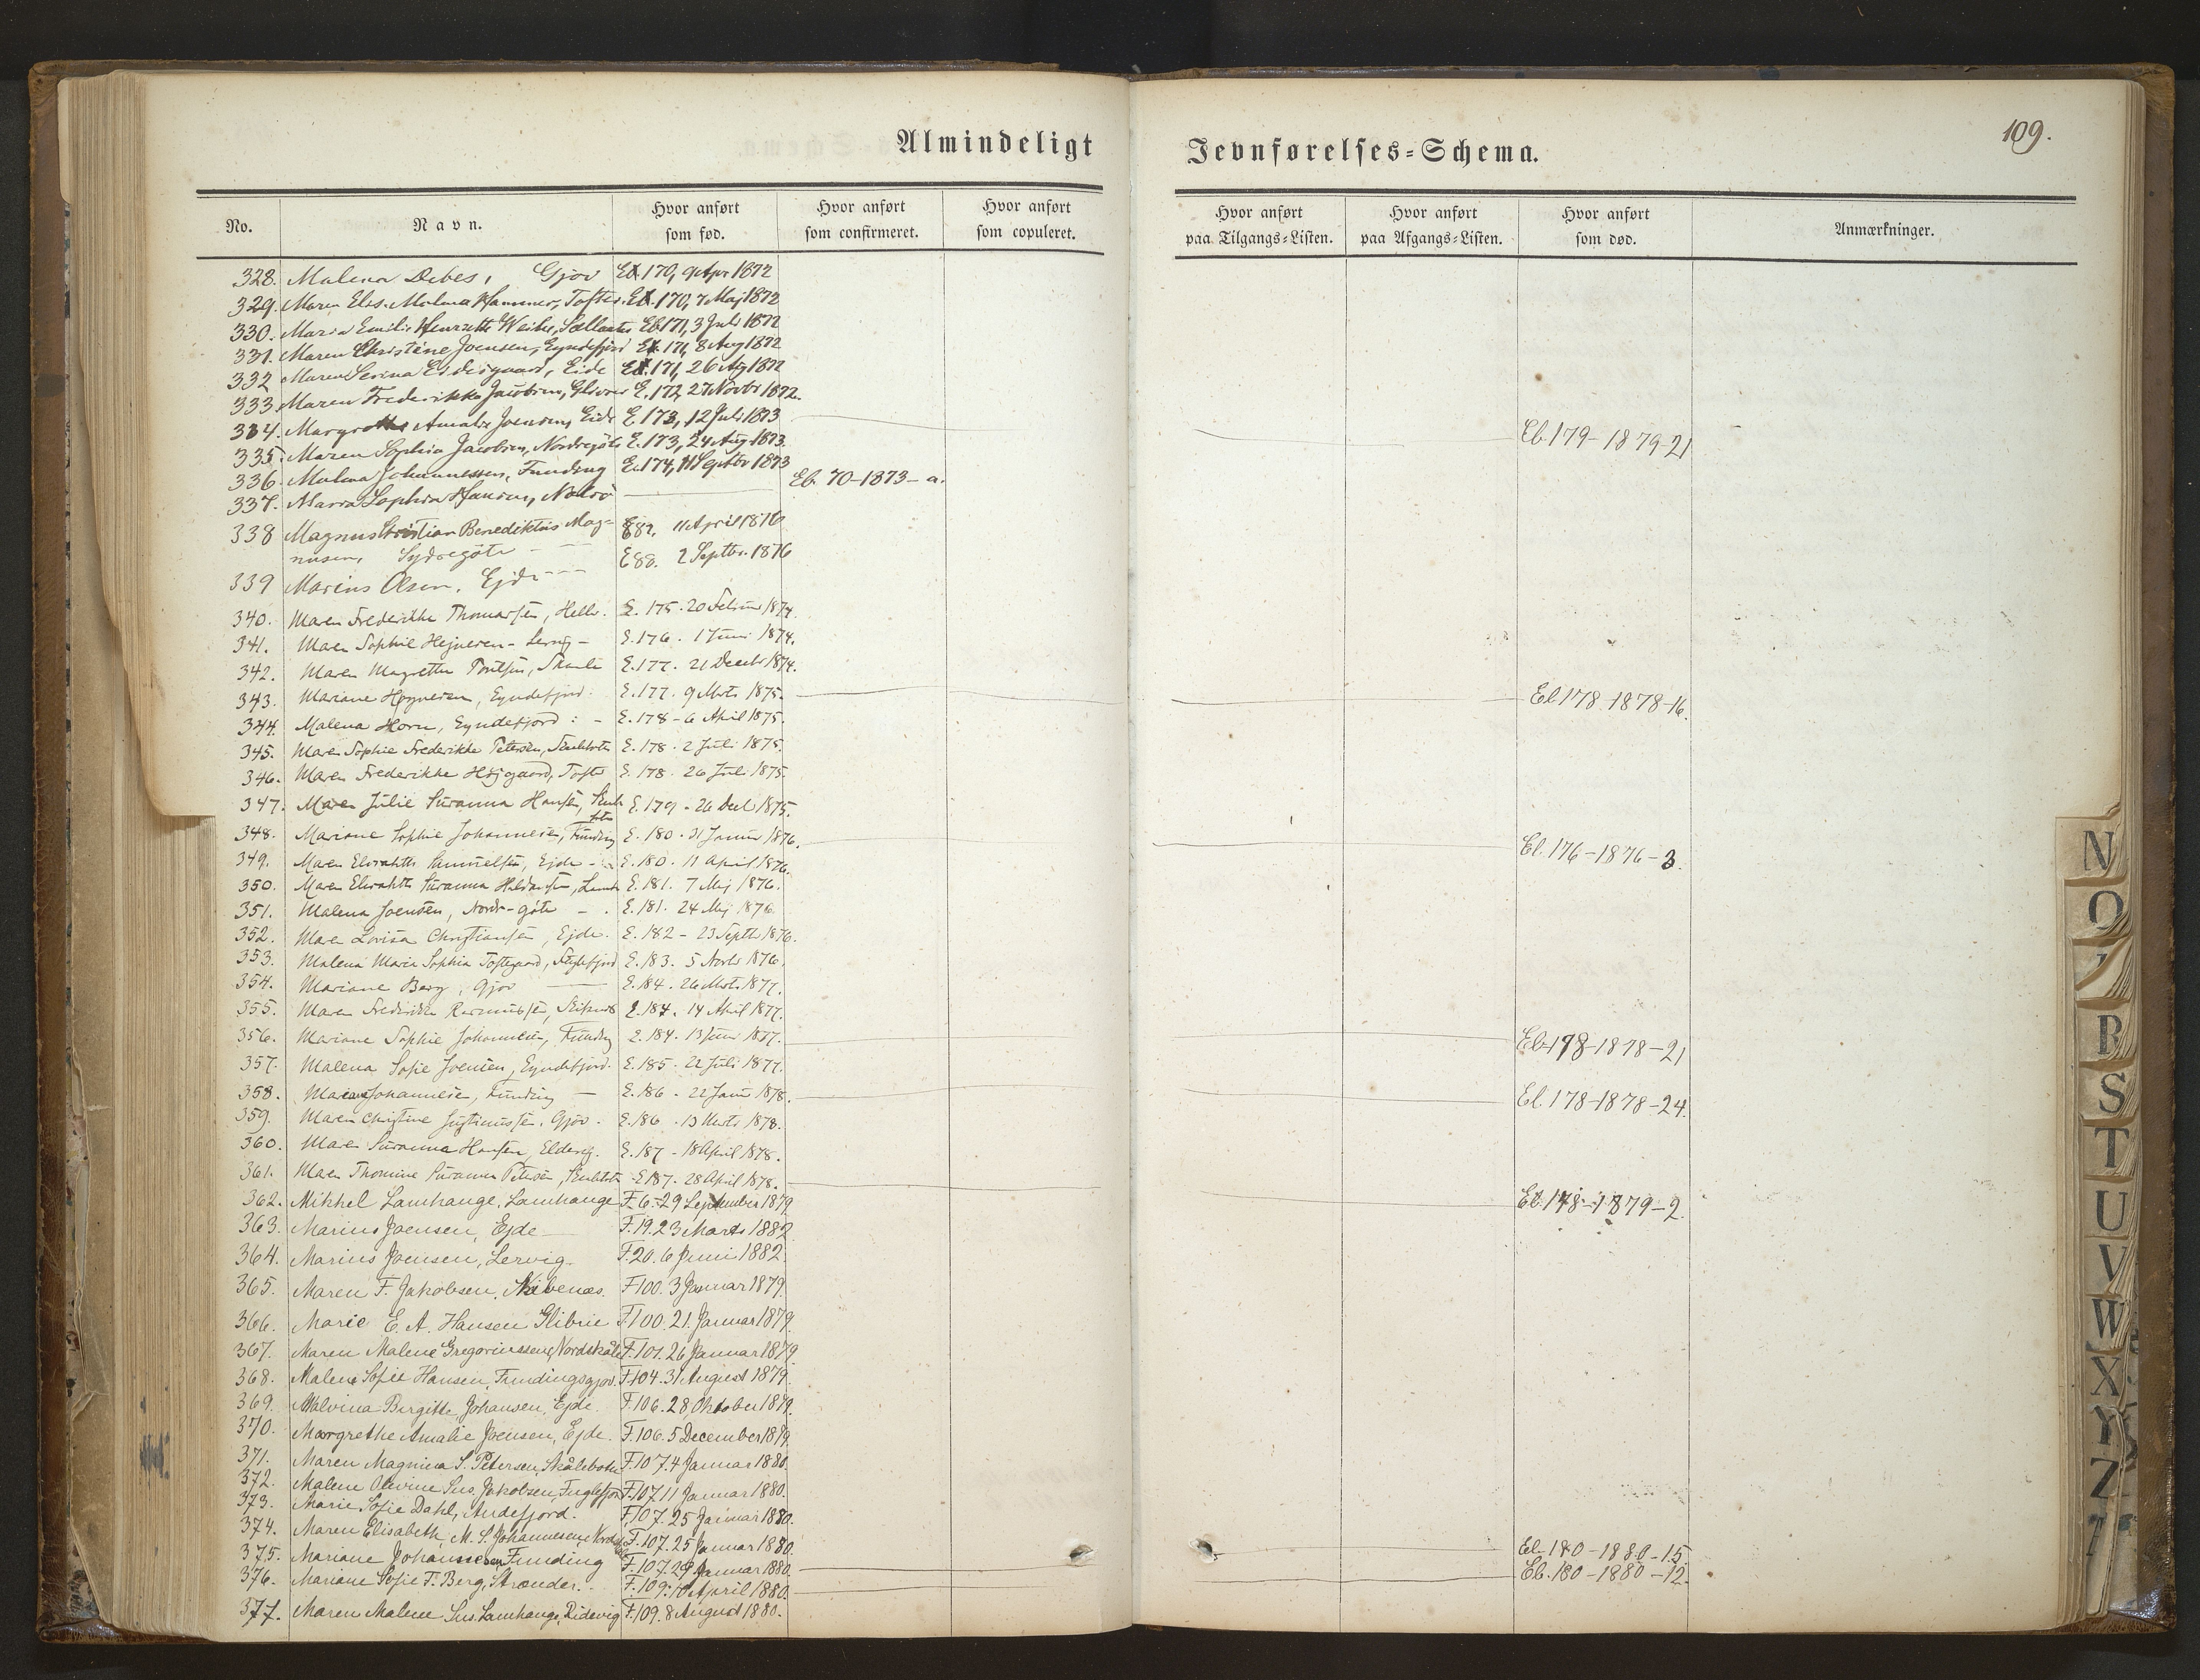 109.
Almindeligt Jevnførelses=Schema.
No. Navn. Hvor anført som fød. Hvor anført som confirmeret. Hvor anført som copuleret. Hvor anført paa Tilgangs=Listen. Hvor anført paa Afgangs=Listen. Hvor anført som død. Anmærkninger.
328. Malena Debes, Gjov 170, 9 Apr 1872
329. Maren Elis. Malena Hammer, Tofte. 170, 7 Maj 1872
330. Maria Emilie Henriette Weihe, Eb 171, 3 Juli 1872
331. Maren Christine Joensen, Eyndefjord 171, 8 Aug 1872
332 Maren Serina Eide 171, 26 Aug 1872
333. Maren Frederikke Jacobsen, E. 172, 27 Novbr 1872.
334. Margrethe Amalie Joensen, Eide E 173, 12 Juli 1873 Eb 179-1879-21
335. Maren Sophia Jacobsen, Nordregöte E. 173, 24 Aug. 1873.
336. Malena Johannessen, Funding E. 174, 11 Septbr 1873
337. Maria Sophia Hansen, Nolsö Eb. 70-1873-a.
338 Magnus Kristian Benediktus Mag= E82. 11 April 1876
nusen, Sydregöte
339 Marius Olsen, Ejde E 2 Septbr. 1876
340. Maren Frederikke Thomassen, Helle. E. 175. 20 Februar 1874
341. Maren Sophie Hejnesen - Lervig - E. 176. 1 Juni 1874.
342. Maren Magrethe Poulsen, E. 177. 21 Decbr 1874.
343. Mariane Høgnesen, Eyndefjord. E. 177. 9 Mrts 1875. El 178-1878-16.
344. Malena Horn, Eyndefjord: - E. 178 - 6 April 1875.
345. Maren Sophie Frederikke Petersen, E. 178. 2 Juli 1875.
346. Maren Frederikke Højgaard, Tofte E. 178. 26 Juli 1875.
347. Maren Julie Susanna Hansen, E. 179. 26 Decb 1875.
348. Mariane Sophie Johannesen, Funding E. 180. 31 Januar 1876. El. 176-1876-3.
349. Maren Elisabeth Samuelsen, Ejde - E. 180. 11 April 1876.
350. Maren Elisabeth Susanna E. 181. 7 Maj 1876.
351. Malena Joensen, Nordr-göte - . E. 181. 24 Maj 1876
352. Maren Lovisa Christiansen, Ejde. E. 182 - 23 Septb 1876.
353. Malena Marie Sophia Toftegaard, Fuglefjord E. 183. 5 Novbr 1876.
354. Mariane Berg, Gjov E. 184. 26 Mrts. 1877.
355. Maren Frederikke Rasmussen, E. 184. 14 April 1877.
356. Mariane Sophie Johannesen, Funding E. 184. 13 Juni 1877. Eb 178-1878-21
357. Malena Sofie Joensen, Eyndefjord. E. 185. 22 Juli 1877.
358. Mariane Johannesen, Funding - E. 186. 22 Janu 1878. El. 178-1878-24.
359. Maren Christine Justinussen. Gjov. E. 186. 13 Marts 1878.
360. Maren Susanna Hansen, Eldevig. E. 187 - 18 April 1878.
361. Maren Thomine Susanna Petersen, E 187. 28 April 1878.
362. Mikkel Lamhauge, Lamhauge F. 6. 29 September 1879 Eb. 178-1879-2.
363. Marius Joensen, Ejde F. 19. 23 Marts 1882
364. Marius Joensen, Lervig. F. 20. 6 Juni 1882.
365. Maren F. Jakobsen, F 100. 3 Januar 1879.
366. Marie E. A. Hansen Glibrie F 100. 21. Januar 1879.
367. Maren Malene Gregoriussen, Nordskåle F. 101. 26 Januar 1879
368. Malene Sofie Hansen, Fundingsgjov. F. 104. 31 August 1879.
369. Malvina Birgitte Johansen, Ejde F. 106. 28. Oktober 1879.
370. Margrethe Amalie Joensen, Ejde. F. 106. 5 December 1879.
371. Maren Magnina S. Petersen, Skålebotn F. 107. 4 Januar 1880.
372. Malene Olevine Sus. Jakobsen, Fuglefjord F. 107. 11 Januar 1880.
373. Marie Sofie Dahl, Andefjord. F. 107. 25 Januar 1880.
374. Maren Elisabeth M. S. Johannesen, F. 107. 25 Januar 1880.
375. Mariane Johannesen Funding F. 107. 29 Januar 1880. El. 180-1880-15
376. Mariane Sofie F. Berg, Strænder. F. 109. 10 April 1880. Eb. 180-1880-12.
377. Maren Malene Sus. Lamhauge, Ridevig F. 109. 8 August 1880.
N
O
R
S
T
U
V
W
X
Y
Z